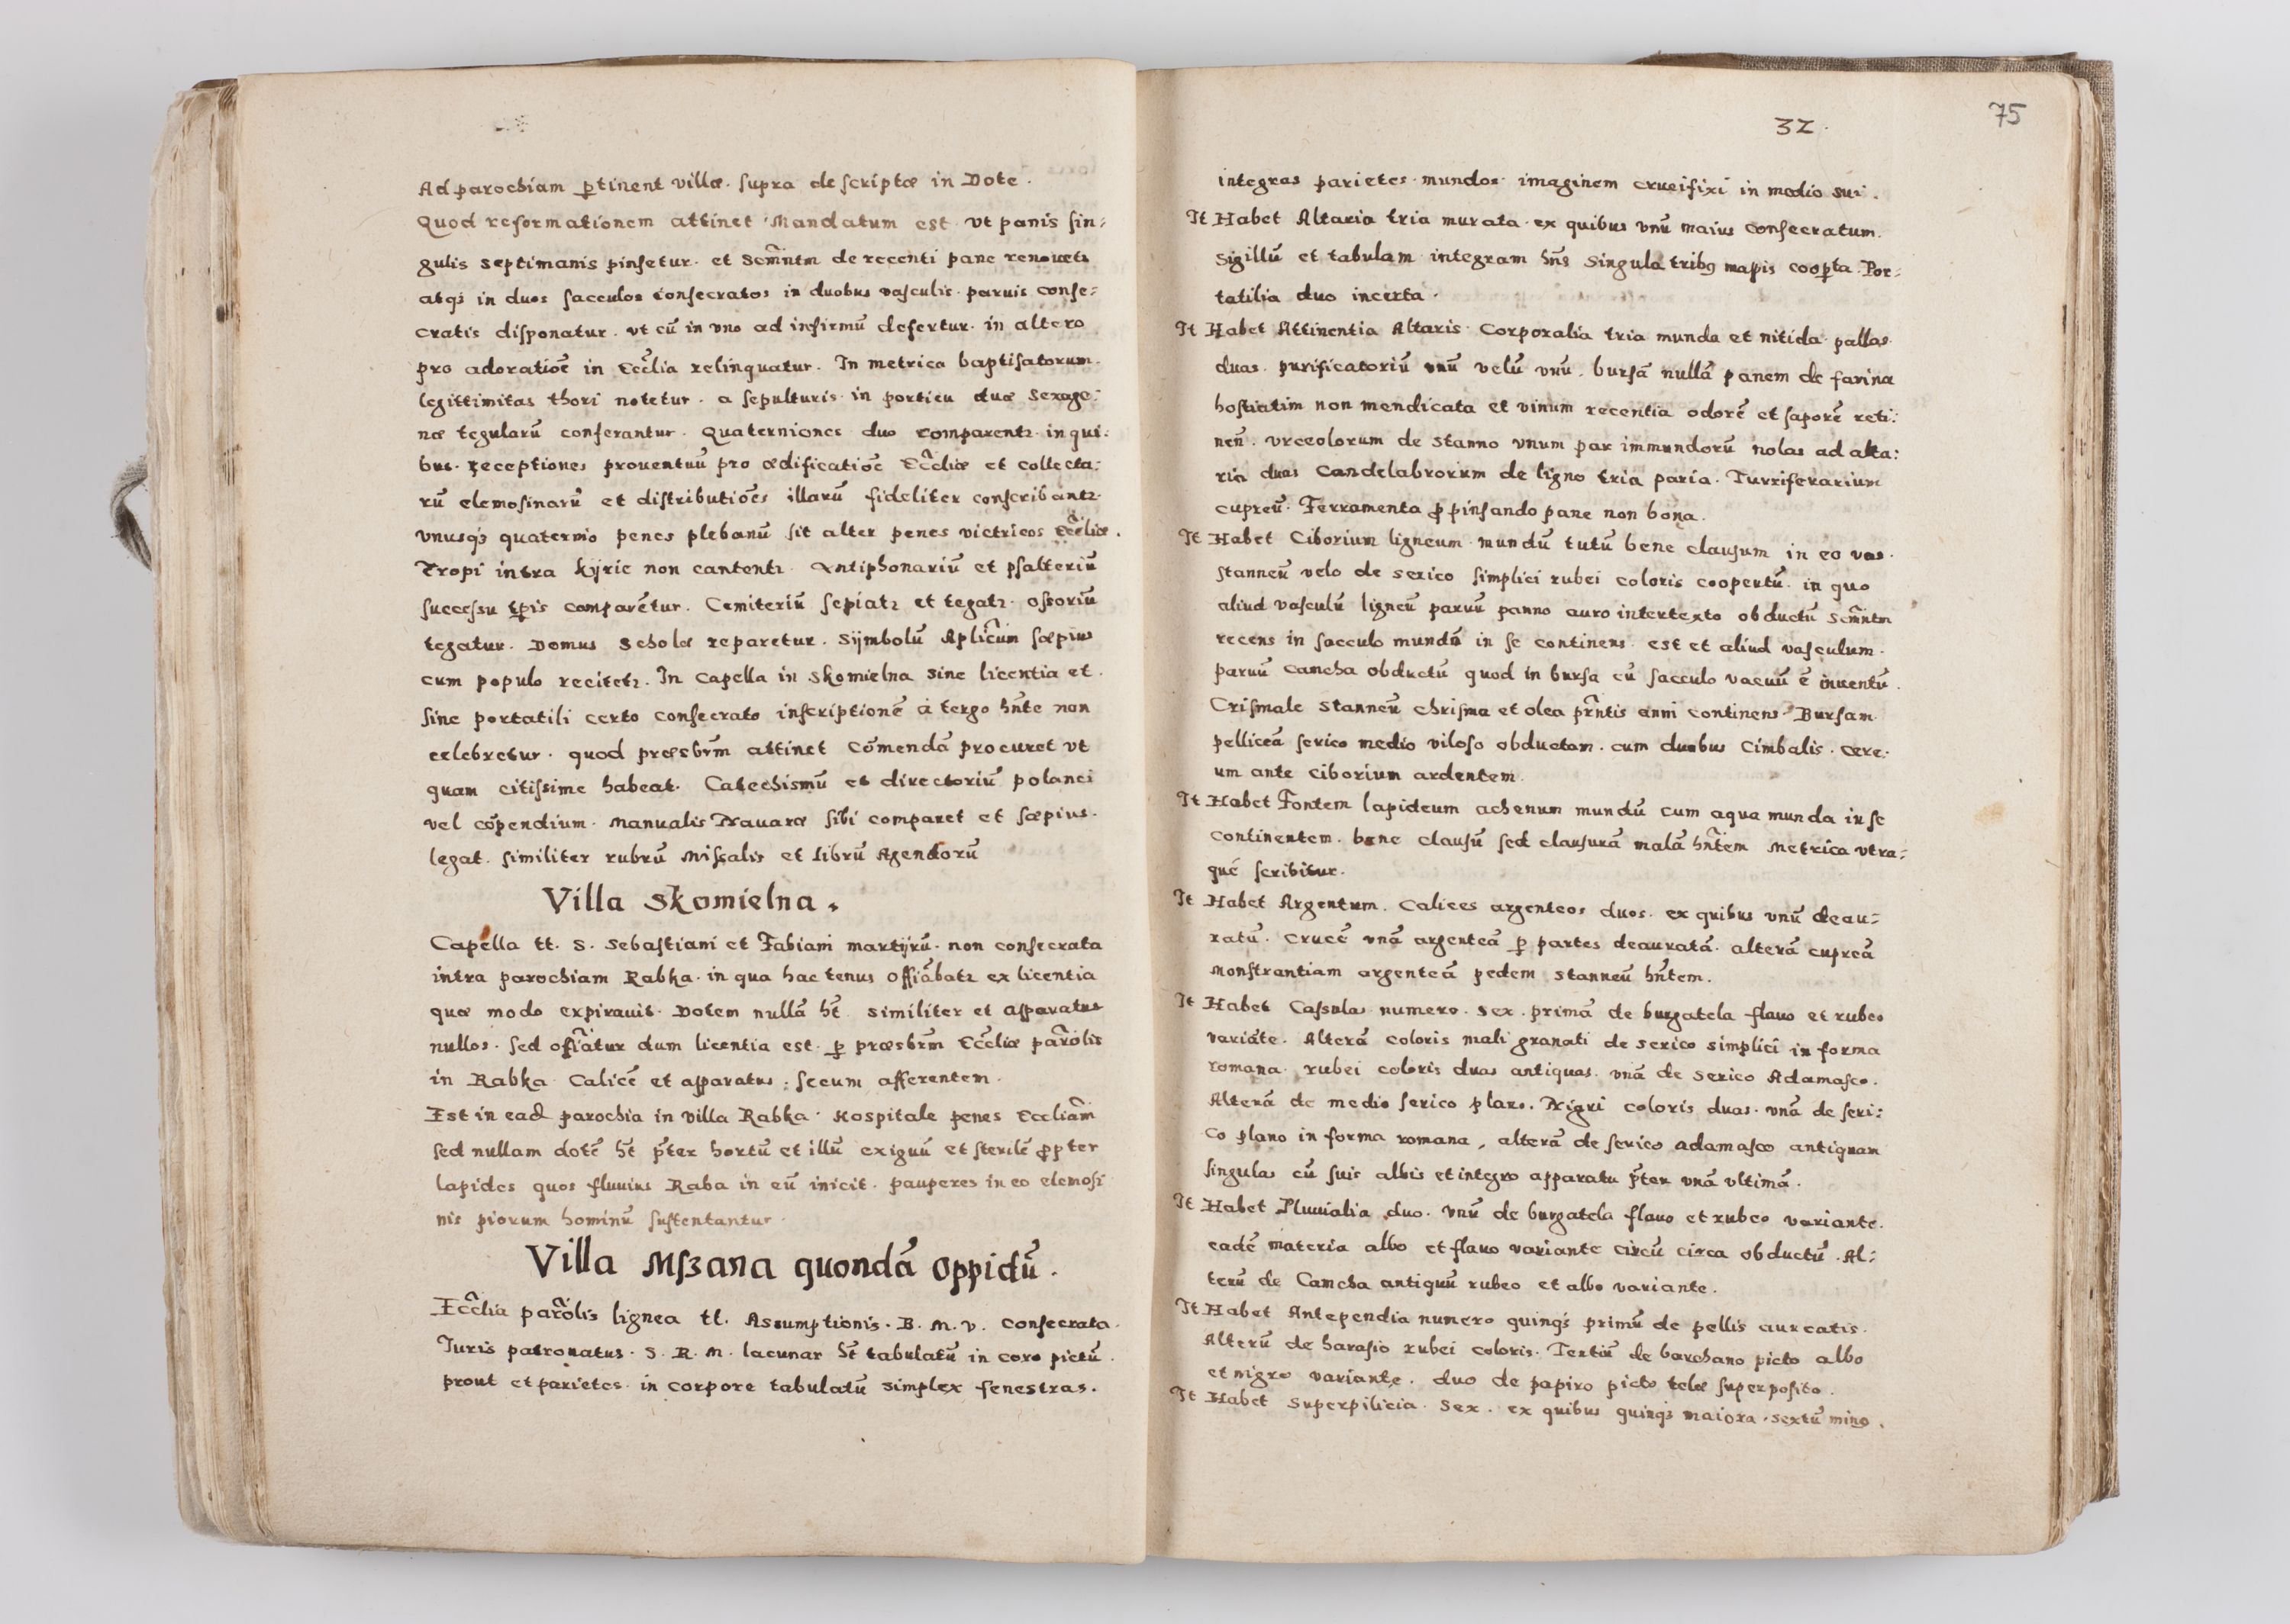 Ad parochiam ꝑtinent villæ. supra descriptæ in Dote.
Quod reformationem attinet Mandatum est vt panis sin:
gulis septimanis pinsetur. et Scm̃ntm de recenti pane renouetꝛ
atqꝫ in duos sacculos consecratos in duobus vasculis. paruis conse:
cratis disponatur. vt cũ in vno ad infirmũ defertur. in altero
pro adoratiõe in Eccl̃ia relinquatur. In metrica baptisatorum.
legittimitas thori notetur. a sepulturis in porticu duæ Sexage:
næ tegularũ conferantur. Quaterniones duo comparentꝛ. in qui:
bus. receptiones prouentuũ pro ædificatiõe Eccl̃iæ et collecta:
rũ elemosinarũ et distributiões illarũ fideliter conscribantꝛ.
vnusqꝫ quaternio penes plebanũ sit alter penes victricos Eccl̃iæ.
Tropi intra kyrie non cantentꝛ. Antiphonariũ et psalteriũ
successu tꝑis comparẽtur. Cemiteriũ sepiatꝛ et tegatꝛ. ossoriũ
tegatur. Domus Scholæ reparetur. Sijmbolũ Aplic̃um sæpius
cum populo recitetꝛ. In Capella in Skomielna sine licentia et.
sine portatili certo consecrato inscriptionẽ à tergo hñte non
celebretur. quod præsbrm̃ attinet Cõmendã procuret vt
quam citissime habeat. Catechismũ et directoriũ polanci
vel cõpendium. Manualis Nauaræ sibi comparet et sæpius.
legat. similiter rubrũ Missalis et librũ Agendorũ
Villa Skomielna.
Capella tt. S. Sebastiani et Fabiani martijrũ. non consecrata
intra parochiam Rabka. in qua hactenus offiãbatꝛ ex licentia
quæ modo expirauit. Dotem nullã ht̃ similiter et apparatus
nullos. sed offiãtur dum licentia est. ꝑ præsbrm̃ Eccl̃iæ parõlis
in Rabka Calicẽ et apparatus: secum afferentem.
Est in ead parochia in villa Rabka. Hospitale penes Eccliãm
sed nullam dotẽ ht̃ p̃ter hortũ et illũ exiguũ et sterilẽ ꝓpter
lapides quos fluuius Raba in eũ inicit. pauperes in eo elemosi
nis piorum hominũ sustentantur.
Villa Mszana quondã Oppidũ.
Eccl̃ia parõlis lignea tt. Assumptionis. B. M. V. Consecrata.
Iuris patronatus. S. R. M. lacunar ht̃ tabulatũ in coro pictũ.
prout et parietes. in corpore tabulatũ simplex fenestras.
32.
75
integras parietes mundos imaginem crucifixi in medio sui.
It Habet Altaria tria murata. ex quibus vnũ maius consecratum.
Sigillũ et tabulam integram hñs Singula tribꝰ mapis cooꝑta. Por:
tatilia duo incerta.
It Habet Attinentia Altaris. Corporalia tria munda et nitida pallas.
duas. purificatoriũ vnũ velũ vnũ. bursã nullã panem de farina
hostiatim non mendicata et vinum recentia odorẽ et saporẽ reti:
neñ. vrceolorum de stanno vnum par immundorũ nolas ad alta:
ria duas Candelabrorum de ligno tria paria. Turriferarium
cupreũ. Ferramenta ꝓ pinsando pane non bona.
It Habet Ciborium ligneum mundũ tutũ bene clausum in eo vas.
stanneũ velo de serico simplici rubei coloris coopertũ. in quo
aliud vasculũ ligneũ paruũ panno auro intertexto obductũ Scm̃ntm
recens in sacculo mundũ in se continens. est et aliud vasculum.
paruũ Camcha obductũ quod in bursa cũ sacculo vacuũ ẽ inuentũ.
Crismale stanneũ chrisma et olea prñtis anni continens. Bursam.
pelliceã serico medio viloso obductam. cum duobus Cimbalis. Cere:
um ante Ciborium ardentem.
It Habet Fontem lapideum achenum mundũ cum aqua munda in se
continentem. bene clausũ sed clausurã malã hñtem Metrica vtra:
que scribitur.
It Habet Argentum. Calices argenteos duos. ex quibus vnũ deau:
ratũ. Crucẽ vnã argenteã ꝑ partes deauratã. alterã cupreã
Monstrantiam argenteã pedem stanneũ hñtem.
It Habet Cassulas numero. Sex. primã de burgatela flauo et rubeo
variãte. Alterã coloris mali granati de serico simplici in forma
romana. rubei coloris duas antiquas. vnã de Serico Adamasco.
Alterã de medio serico plano. Nigri coloris duas. vnã de seri:
co plano in forma romana, alterã de serico adamasco antiquam
singulas cũ suis albis et integro apparatu p̃ter vnã vltimã.
It Habet Pluuialia duo. Vnũ de burgatela flauo et rubeo variante.
eadẽ materia albo et flauo variante circũ circa obductũ. Al:
terũ de Camcha antiquũ rubeo et albo variante.
It Habet Antependia numero quinqꝫ primũ de pellis aureatis.
Alterũ de harasio rubei coloris. Tertiũ de barchano picto albo
et nigro variante. duo de papiro picto telæ superposito.
It Habet Superpilicia. Sex. ex quibus quinqꝫ maiora. sextũ mino.